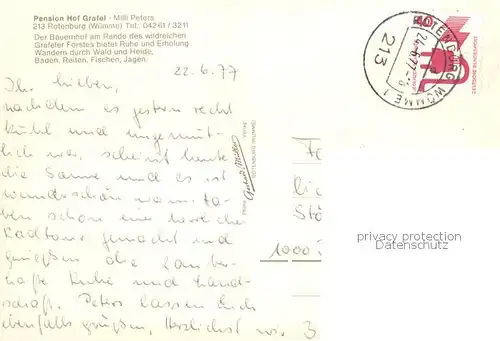 Pension Hof Grafel - Milli Peters
213 Rotenburg (Wümme) Tel.: 04261/3211
Der Bauernhof am Rande des wildreichen
Grafeler Forstes bietet Ruhe und Erholung
Wandern durch Wald und Heide,
Baden, Reiten, Fischen, Jagen.
22.6.77
Ihr Lieben,
nachdem es gestern recht
kühl und ungemüt-
lich war, scheint heute
die Sonne und es ist
wunderschön warm. Ha-
ben schon eine herrliche
Radtour gemacht und
genießen die zauber-
hafte Ruhe und Land-
schaft. Peters lassen Euch
ebenfalls grüßen, Herzlichst
ROTENBURG WÜMME 1
213
40
Photo
Verlag
ROTENBURG (WÜMME)
1000
privacy protection
Datenschutz